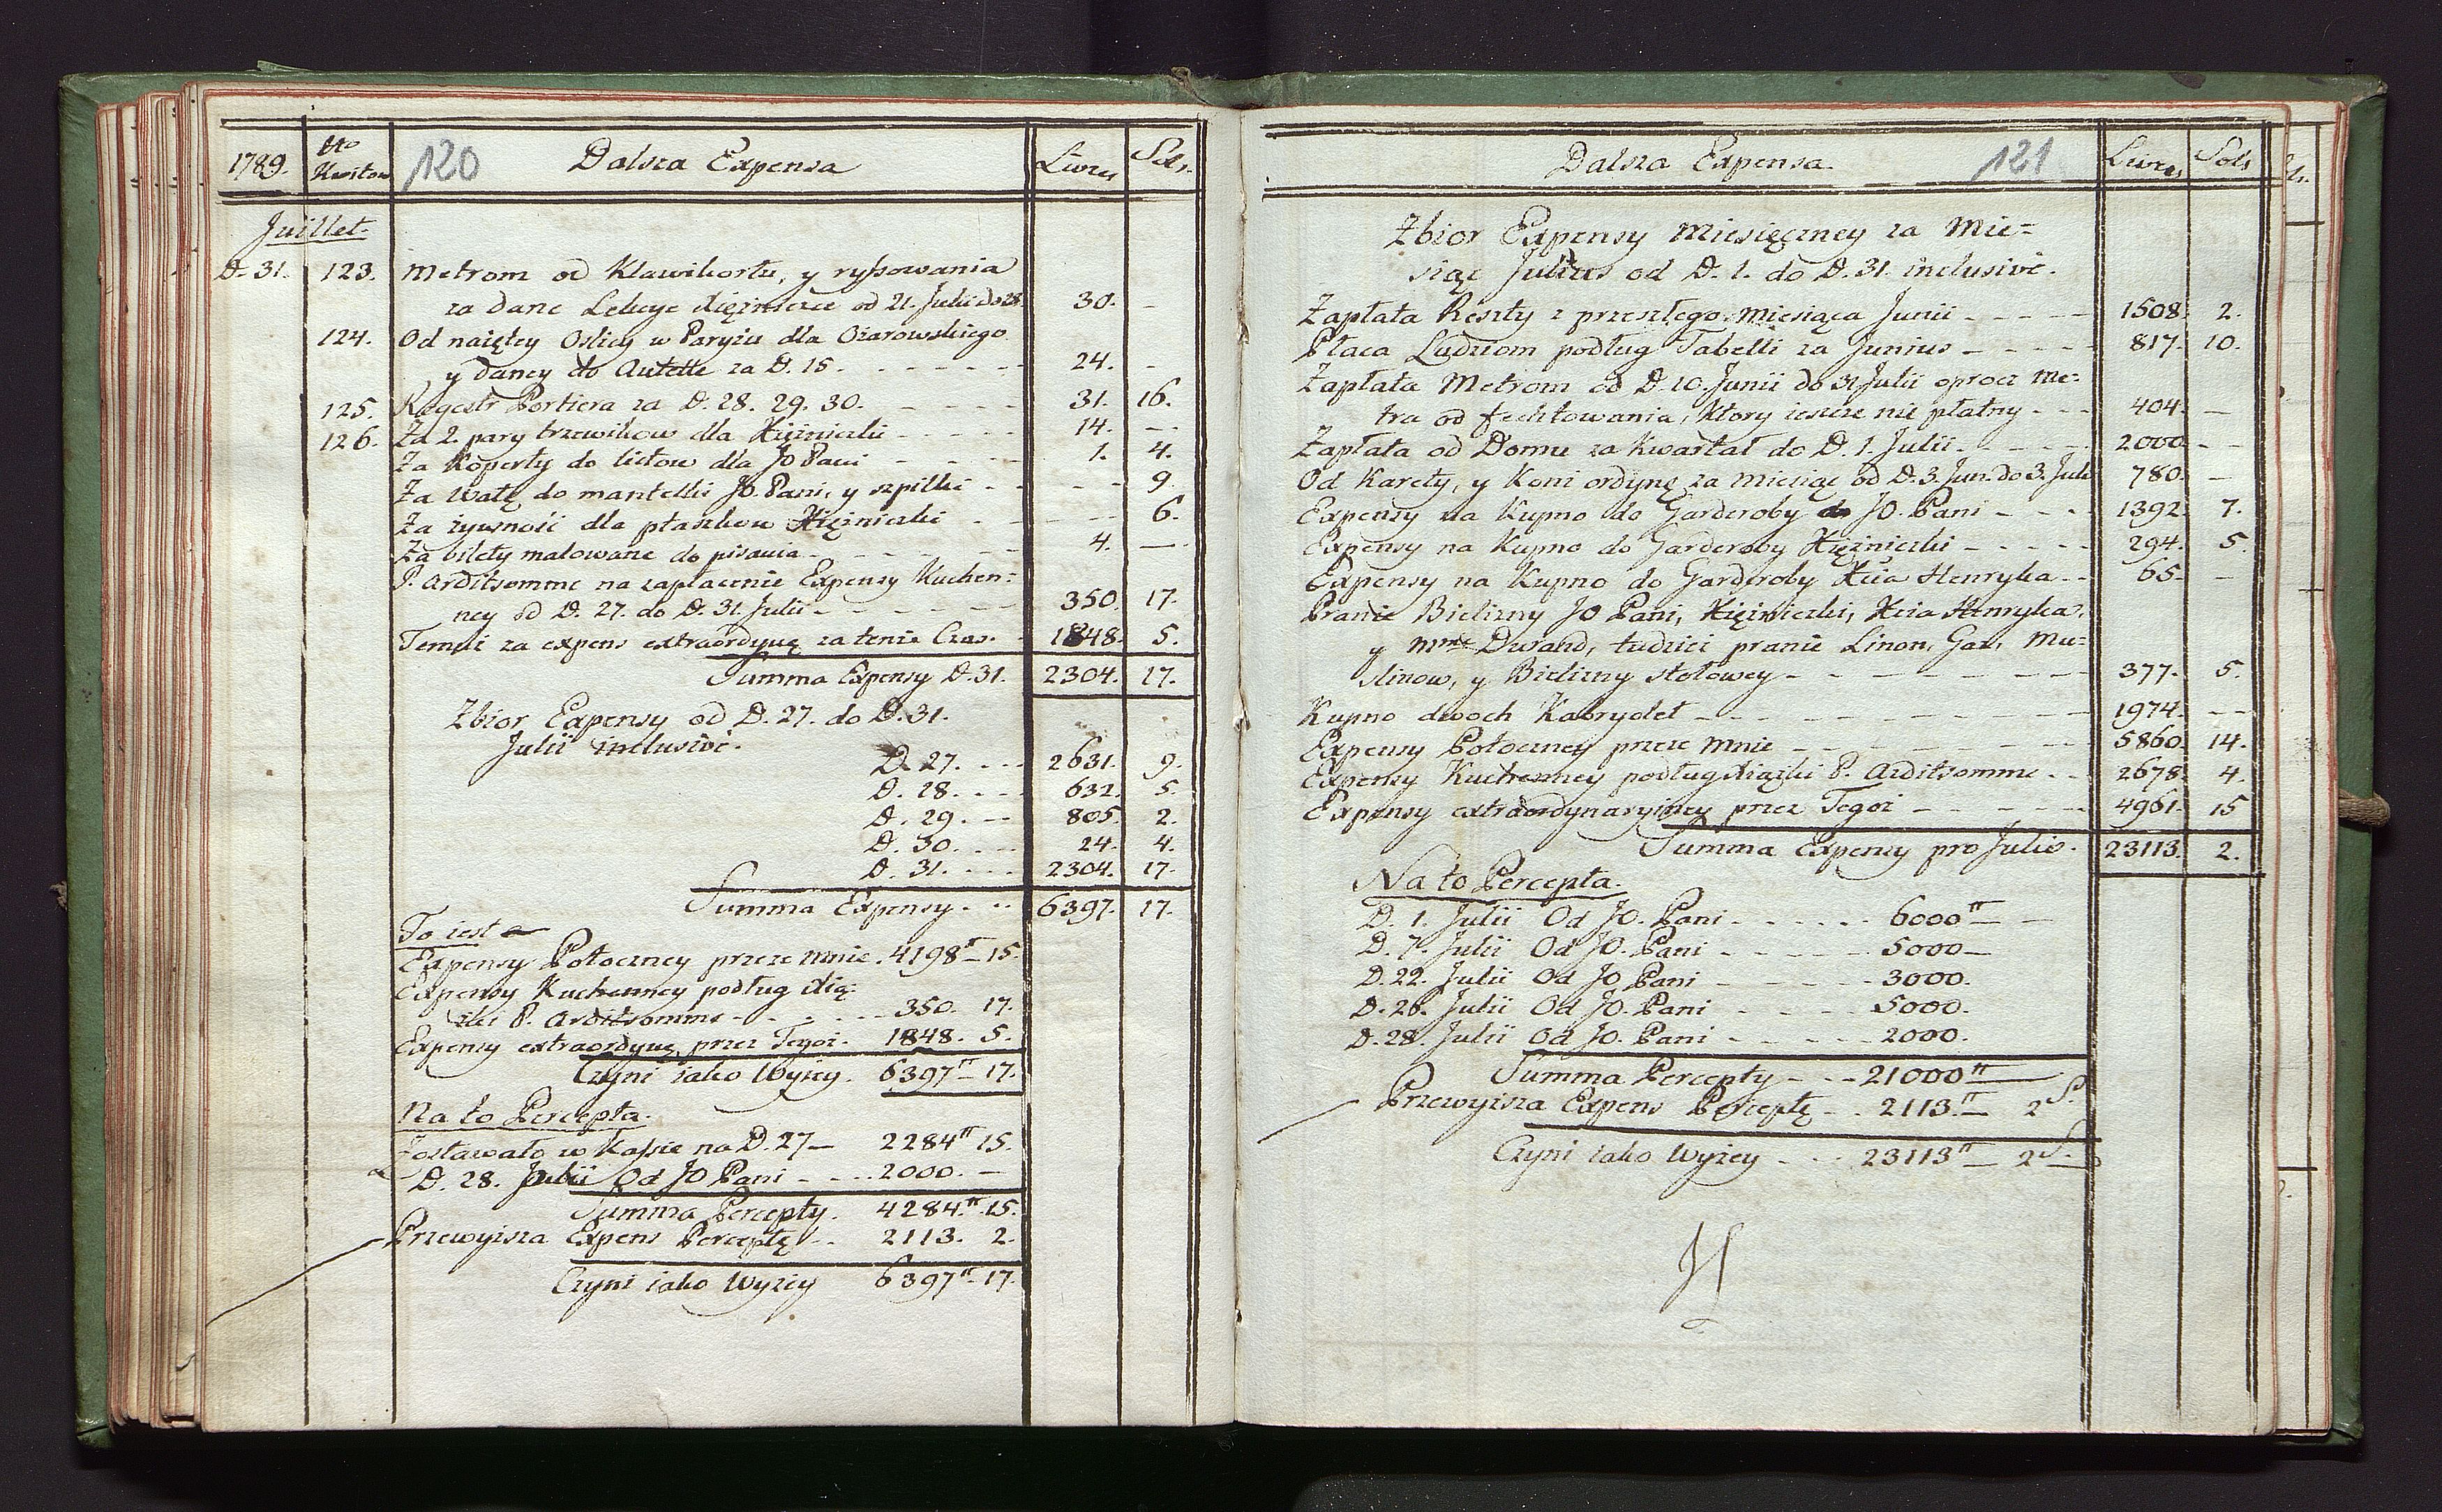 1789. No Kwitow 120 Dalsza Expensa Livres Sols.
Juillet.
D. 31. 123. Metrom od Klawikortu, y ryssowania
za dane Lekcye Xiężniczce od 21. Julii do 28. 30. -
124. Od naiętey Oslicy w Paryżu dla Ożarowskiego
y daney do Autelle za D. 15. 24. -
125. Regestr Portiera za D. 28. 29. 30. 31. 16.
126. Za 2. pary trzewikow dla Xiężniczki 14. -
Za Koperty do listow dla JO Pani 1. 4.
Za Watę do mantelki JO. Pani, y szpilki - 9.
Za żywność dla ptaszkow Xiężniczki - 6.
Za bilety malowane do pisania 4. -
P. Arditsomme na zapłacenie Expensy Kuchen=
ney od D. 27. do D. 31. Julii 350. 17.
Temuż za expens extraordynę za tenże Czas. 1848. 5.
Summa Expensy D. 31. 2304. 17.
Zbior Expensy od D. 27. do D. 31.
Julii inclusivè.
D. 27. 2631. 9.
D. 28. 632. 5.
D. 29. 805. 2.
D. 30. 24. 4.
D. 31. 2304. 17.
Summa Expensy 6397. 17.
To iest
Expensy Potoczney przeze mnie. 4198 # 15.
Expensy Kuchenney podług Xią=
żki P. Arditsomme 350. 17.
Expensy extraordynę przez Tegoż. 1848. 5.
Czyni iako Wyżey. 6397 # 17.
Na to Percepta.
Zostawało w Kassie na D. 27 2284 # 15.
D. 28. Julii Od JO Pani 2000. -
Summa Percepty. 4284. # 15.
Przewyższa Expens Perceptę 2113. 2.
Czyni iako Wyżey 6397 # 17.
Dalsza Expensa. 121 Livres Sols
Zbior Expensy Miesięczney za Mie=
siąc Julius od D. 1. do D. 31. inclusivè.
Zapłata Reszty z przeszłego Miesiąca Junii 1508. 2.
Płaca Ludziom podług Tabelli za Junius 817. 10.
Zapłata Metrom od D. 10. Junii do 31 Julii oprocz Me=
tra od fechtowania, Ktory ieszcze nie płatny 404. -
Zapłata od Domu za Kwartał do D. 1. Julii 2000. -
Od Karety, y Koni ordynę za Miesiąc od D. 3. Jun. do 3. Julii 780. -
Expensy na Kupno do Garderoby JO. Pani 1392. 7.
Expensy na Kupno do Garderoby Xiężniczki 294. 5.
Expensy na Kupno do Garderoby Xcia Henryka 65. -
Pranie Bielizny JO Pani, Xiężniczki, Xcia Henryka,
y Mme Durand, tudzież pranie Linon, Gaz, Mu=
slinow, y Bielizny stołowey 377. 5.
Kupno dwoch Kabryolet 1974. -
Expensy Potoczney przeze mnie 5860. 14.
Expensy Kuchenney podług Xiążki P. Arditsomme 2678. 4.
Expensy extraordynaryiney przez Tegoż 4961. 15
Summa Expensy pro Julio. 23113. 2.
Na to Percepta.
D. 1. Julii Od JO. Pani 6000 # -
D. 7. Julii Od JO. Pani 5000 -
D. 22. Julii Od JO Pani 3000.
D. 26. Julii Od JO. Pani 5000.
D. 28. Julii Od JO. Pani 2000.
Summa Percepty 21000 #
Przewyższa Expens Perceptę 2113. # 2 S.
Czyni iako Wyżey 23113 # 2 S.